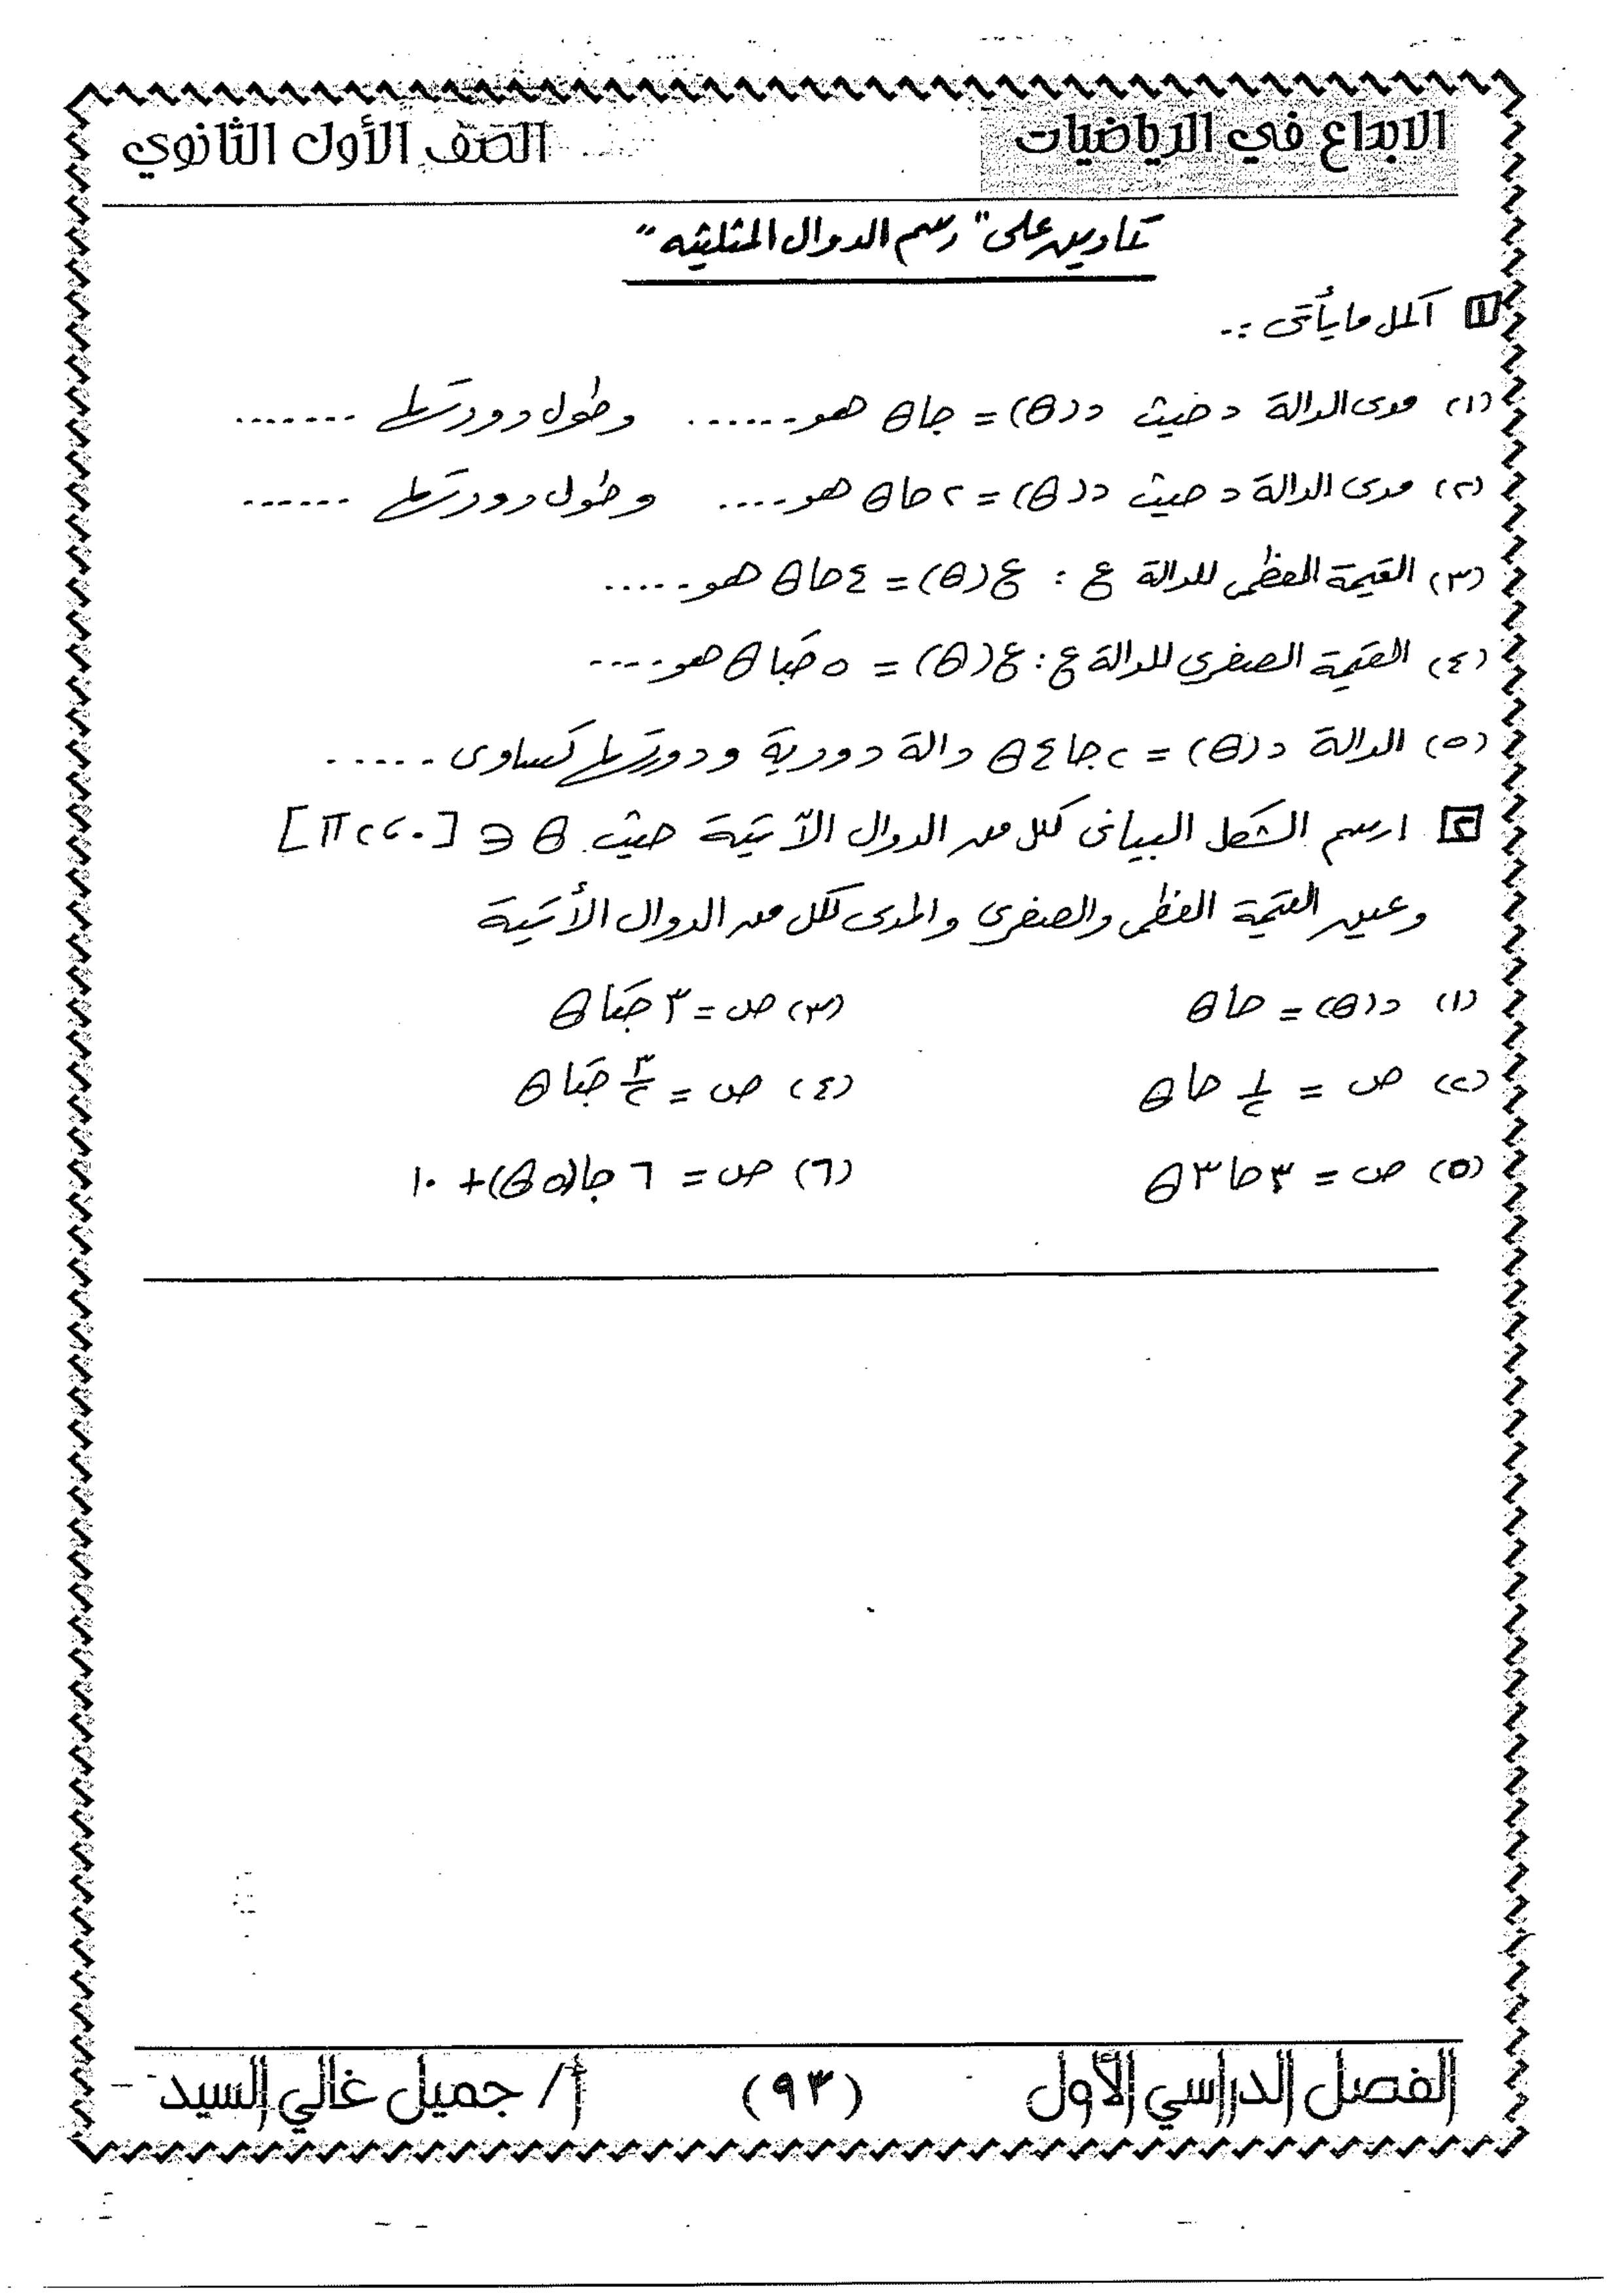 الابداع في الرياضيات
الصف الأول الثانوي
تمارين على "رسم الدوال المثلثيه"
١ أكمل ما يأتى :-
(١) مدى الدالة د حيث د(θ) = جا θ هو ....... وطول دورتها .......
(٢) مدى الدالة د حيث د(θ) = ٢ حا θ هو .... وطول دورتها ......
(٣) القيمة العظمى للدالة ع : ع(θ) = ٤ حا θ هو .....
(٤) القيمة الصغرى للدالة ع : ع(θ) = ٥ حَتا θ هو ....
(٥) الدالة د(θ) = ٢ جا ٤ θ دالة دورية ودورتها تساوى .....
٢ ارسم الشكل البيانى لكل من الدوال الآتية حيث θ ∈ [٠، ٢π]
وعين القيمة العظمى والصغرى والمدى لكل من الدوال الأتية
(١) د(θ) = حا θ (٣) ص = ٣ جتا θ
(٢) ص = ١/٢ حا θ (٤) ص = ٣/٢ جتا θ
(٥) ص = ٣ حا ٣ θ (٦) ص = ٦ جا(٥ θ) + ١٠
الفصل الدراسي الأول
(٩٣)
أ/ جميل غالي السيد